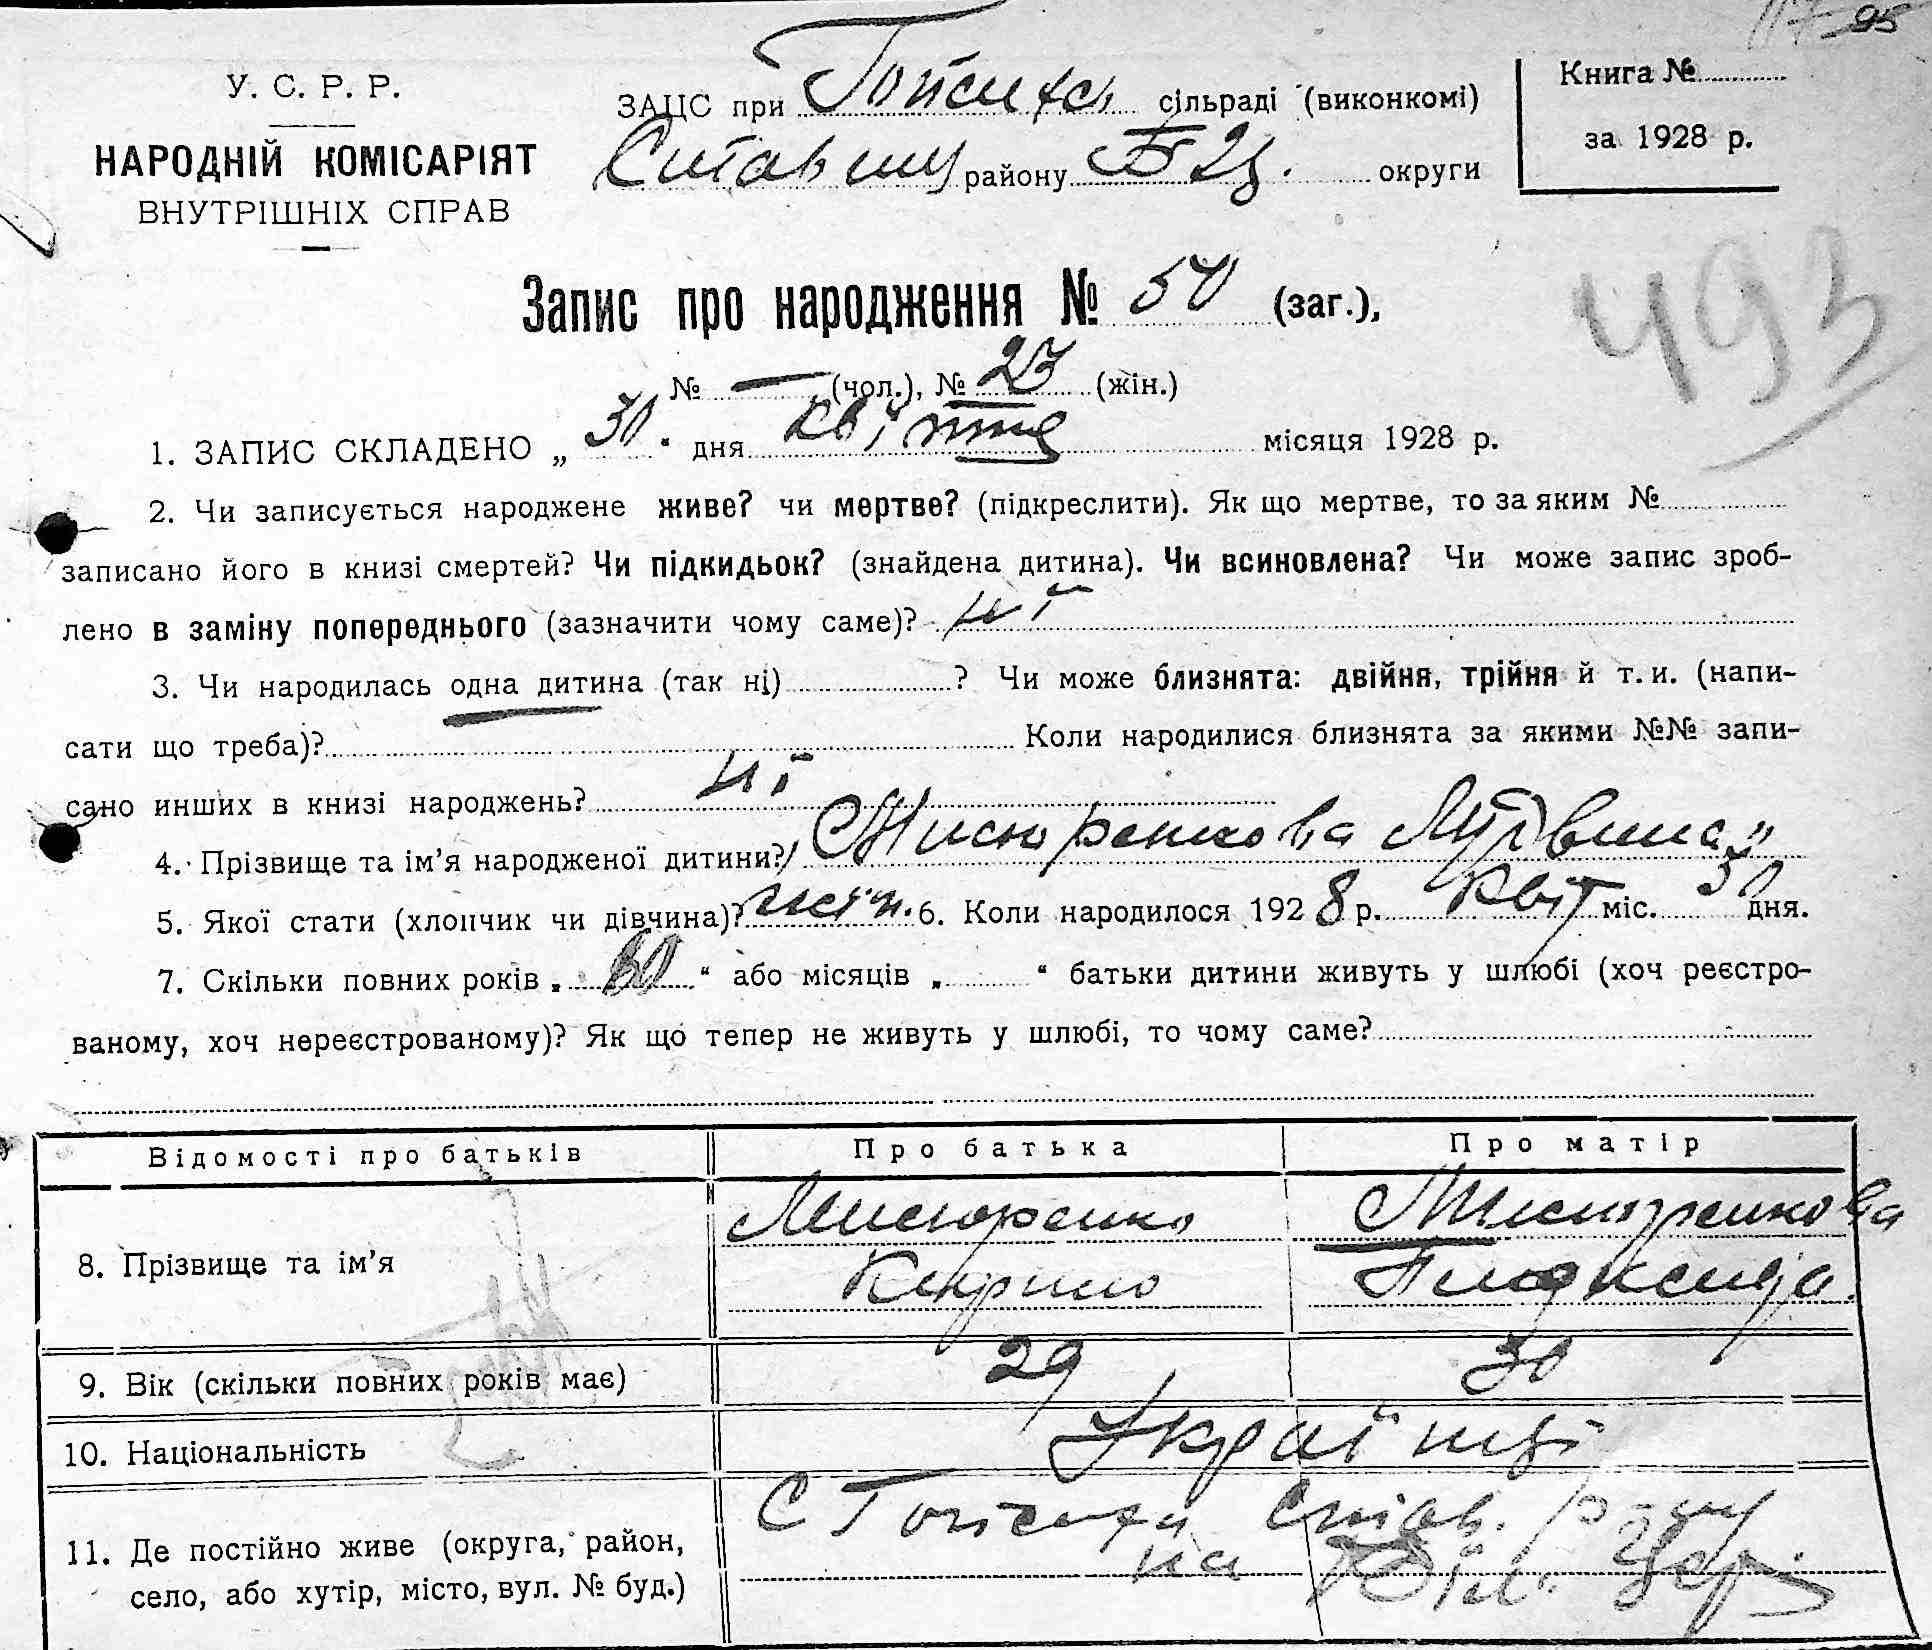 95
У. С. Р. Р.
НАРОДНІЙ КОМІСАРІЯТ
ВНУТРІШНІХ СПРАВ
ЗАЦС при сільраді (виконкомі)
району Б Ц. округи
Книга №
за 1928 р.
493
Запис про народження № 50 (заг.),
№ — (чол.), № 23 (жін.)
1. ЗАПИС СКЛАДЕНО „ 30 “ дня квітня місяця 1928 р.
2. Чи записується народжене живе? чи мертве? (підкреслити). Як що мертве, то за яким №
записано його в книзі смертей? Чи підкидьок? (знайдена дитина). Чи всиновлена? Чи може запис зроб-
лено в заміну попереднього (зазначити чому саме)? ні
3. Чи народилась одна дитина (так ні) ? Чи може близнята: двійня, трійня й т. и. (напи-
сати що треба)? Коли народилися близнята за якими №№ запи-
сано инших в книзі народжень? ні
4. Прізвище та ім’я народженої дитини? Мисюренкова
5. Якої статі (хлопчик чи дівчина)? жін. 6. Коли народилося 1928 р. Квіт міс. 30 дня.
7. Скільки повних років „ “ або місяців „ “ батьки дитини живуть у шлюбі (хоч реєстро-
ваному, хоч нереєстрованому)? Як що тепер не живуть у шлюбі, то чому саме?
Відомості про батьків Про батька Про матір
8. Прізвище та ім’я
Мисюренко Мисюренкова
Кирило
9. Вік (скільки повних років має) 29 30
10. Національність Українці
11. Де постійно живе (округа, район,
село, або хутір, місто, вул. № буд.)
С Став. р-ну
на Біл. Цер.